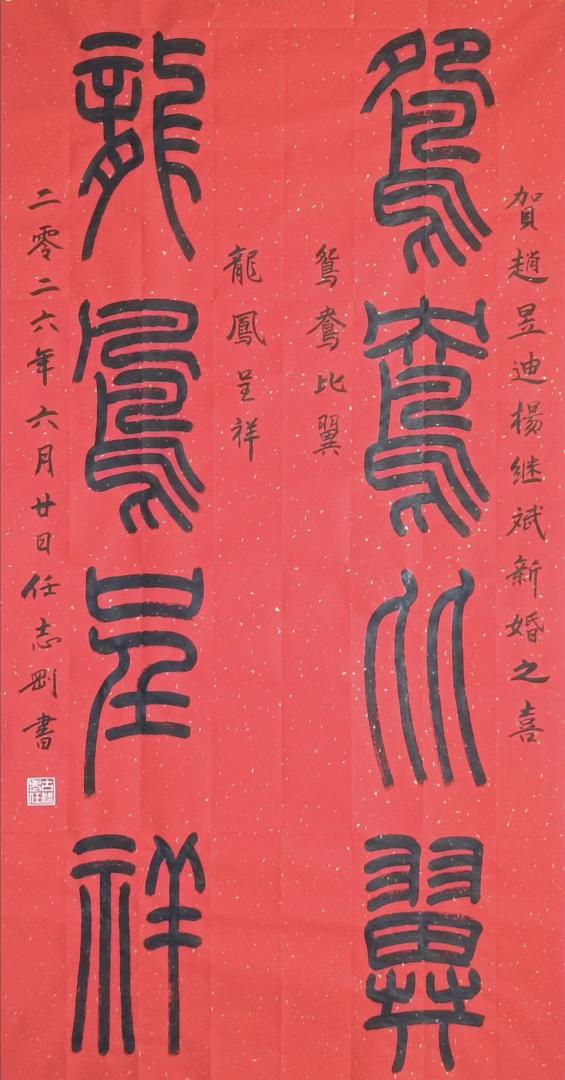 賀趙昱迪楊继斌新婚之喜
鴛鴦比翼
鴛鴦比翼
龍鳳呈祥
龍鳳呈祥
二零二六年六月廿日任志剛書